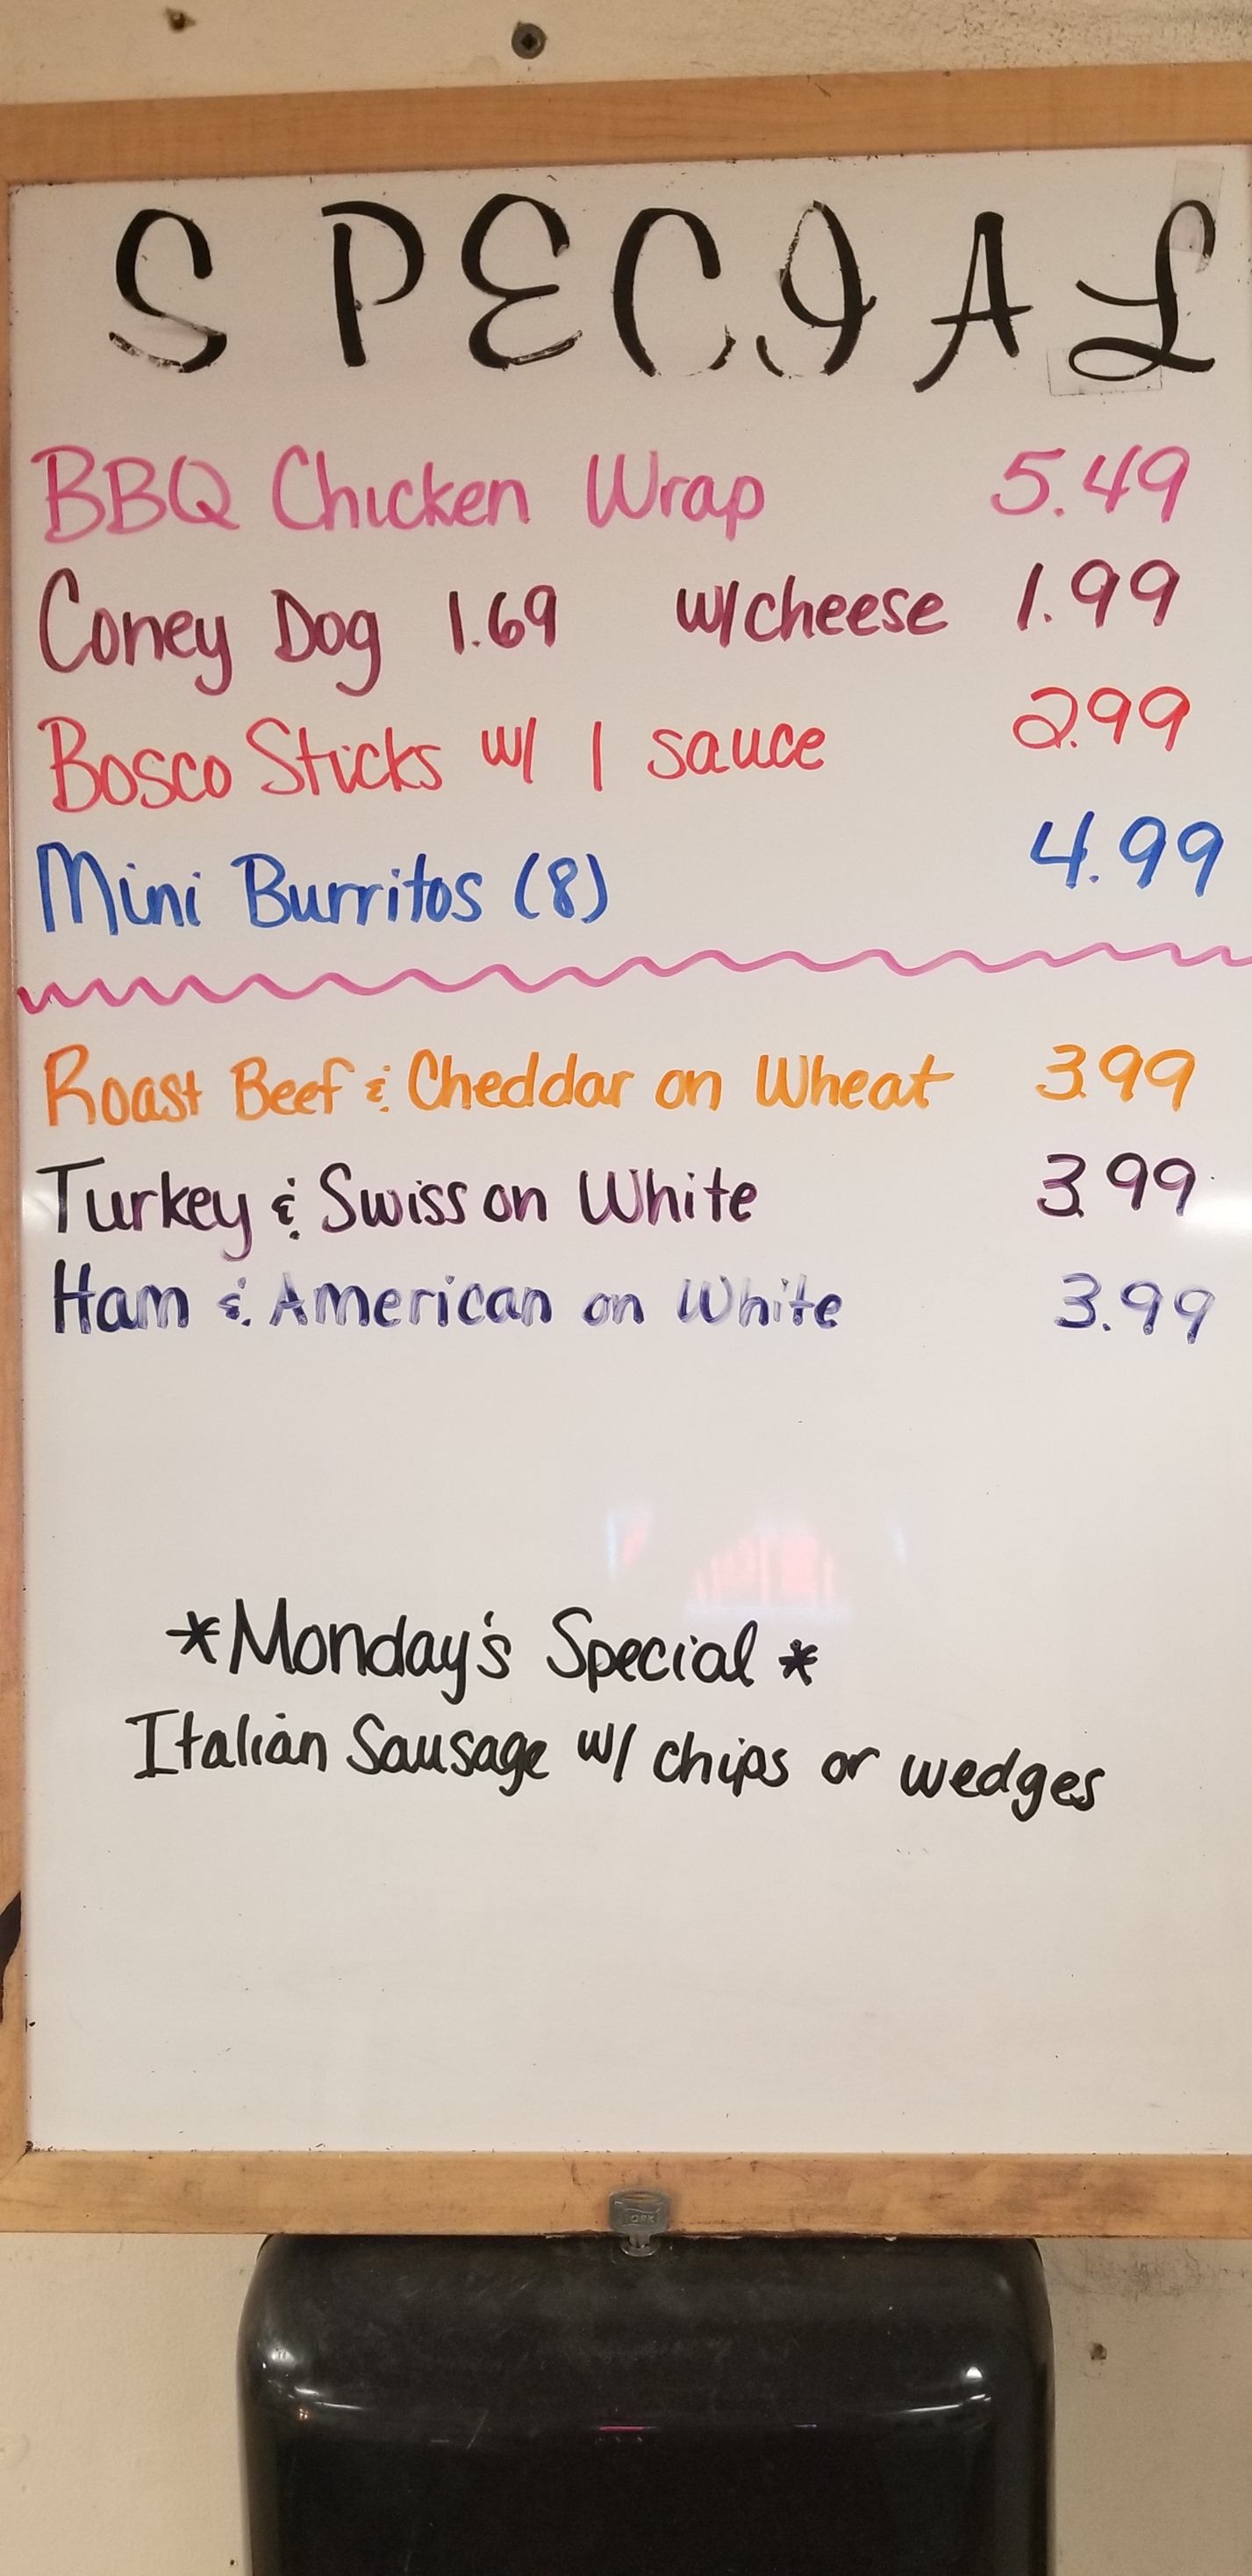 SPECIAL
BBQ Chicken Wrap 5.49
Coney Dog 1.69 w/cheese 1.99
Bosco Sticks w/ 1 sauce 2.99
Mini Burritos (8) 4.99
Roast Beef & Cheddar on Wheat 3.99
Turkey & Swiss on White 3.99
Ham & American on White 3.99
*Monday's Special*
Italian Sausage w/ chips or wedges